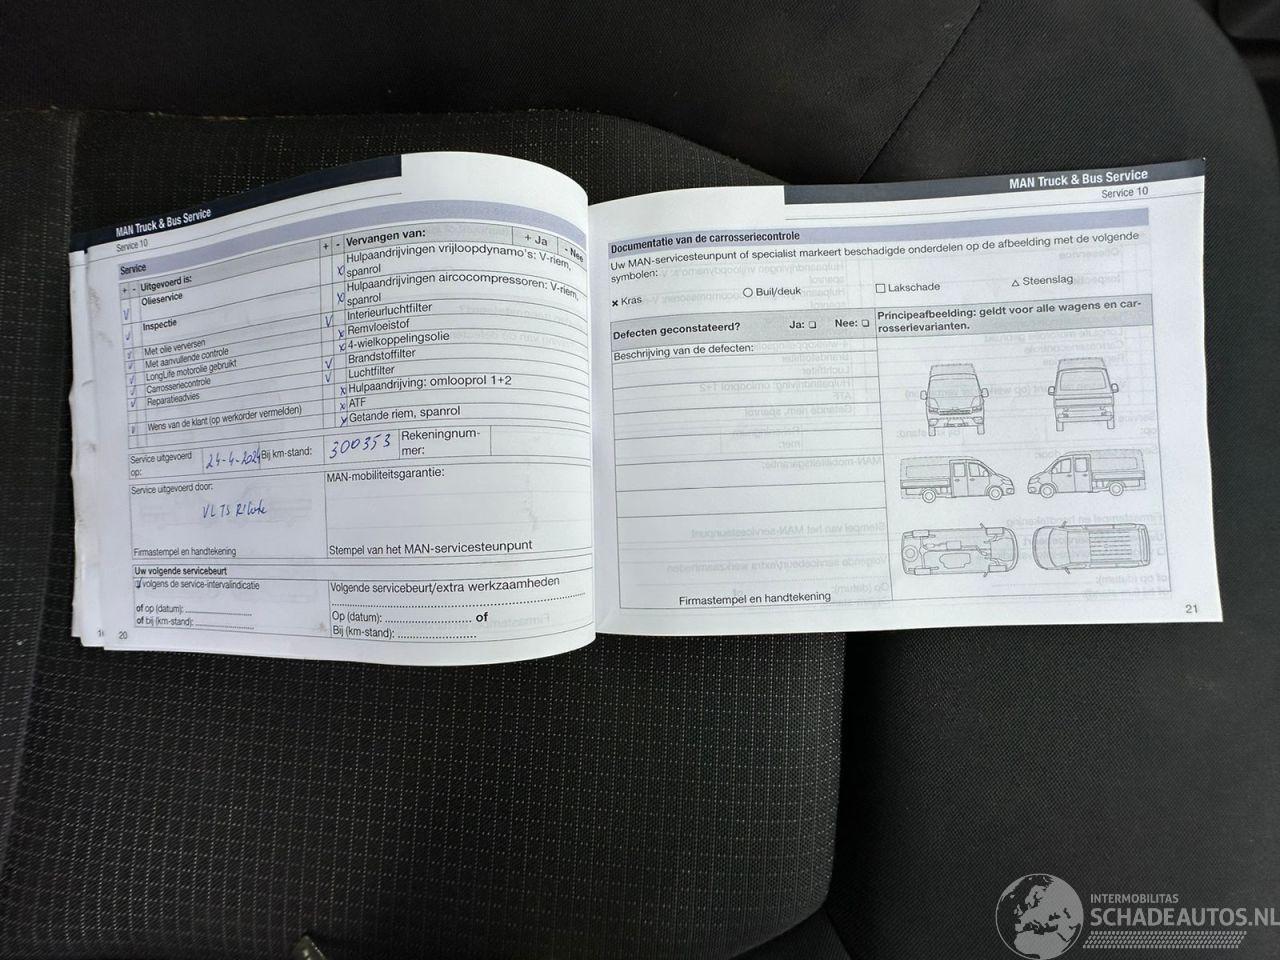 MAN Truck & Bus Service
Service 10
Service
+ - Uitgevoerd is:
Olieservice
Inspectie
Met olie verversen
Met aanvullende controle
LongLife motorolie gebruikt
Carrosseriecontrole
Reparatieadvies
Wens van de klant (op werkorder vermelden)
+ - Vervangen van: + Ja - Nee
Hulpaandrijvingen vrijloopdynamo's: V-riem,
spanrol
Hulpaandrijvingen aircocompressoren: V-riem,
spanrol
Interieurluchtfilter
Remvloeistof
4-wielkoppelingsolie
Brandstoffilter
Luchtfilter
Hulpaandrijving: omlooprol 1+2
ATF
Getande riem, spanrol
Service uitgevoerd
op:
24-4-2024
Bij km-stand:
300353
Rekeningnum-
mer:
Service uitgevoerd door:
Firmastempel en handtekening
MAN-mobiliteitsgarantie:
Stempel van het MAN-servicesteunpunt
Uw volgende servicebeurt
volgens de service-intervalindicatie
of op (datum):
of bij (km-stand):
Volgende servicebeurt/extra werkzaamheden
Op (datum): of
Bij (km-stand):
20
MAN Truck & Bus Service
Service 10
Documentatie van de carrosseriecontrole
Uw MAN-servicesteunpunt of specialist markeert beschadigde onderdelen op de afbeelding met de volgende
symbolen:
x Kras
○ Buil/deuk
□ Lakschade
△ Steenslag
Defecten geconstateerd? Ja: ❏ Nee: ❏
Principeafbeelding: geldt voor alle wagens en car-
rosserievarianten.
Beschrijving van de defecten:
Firmastempel en handtekening
21
INTERMOBILITAS
SCHADEAUTOS.NL